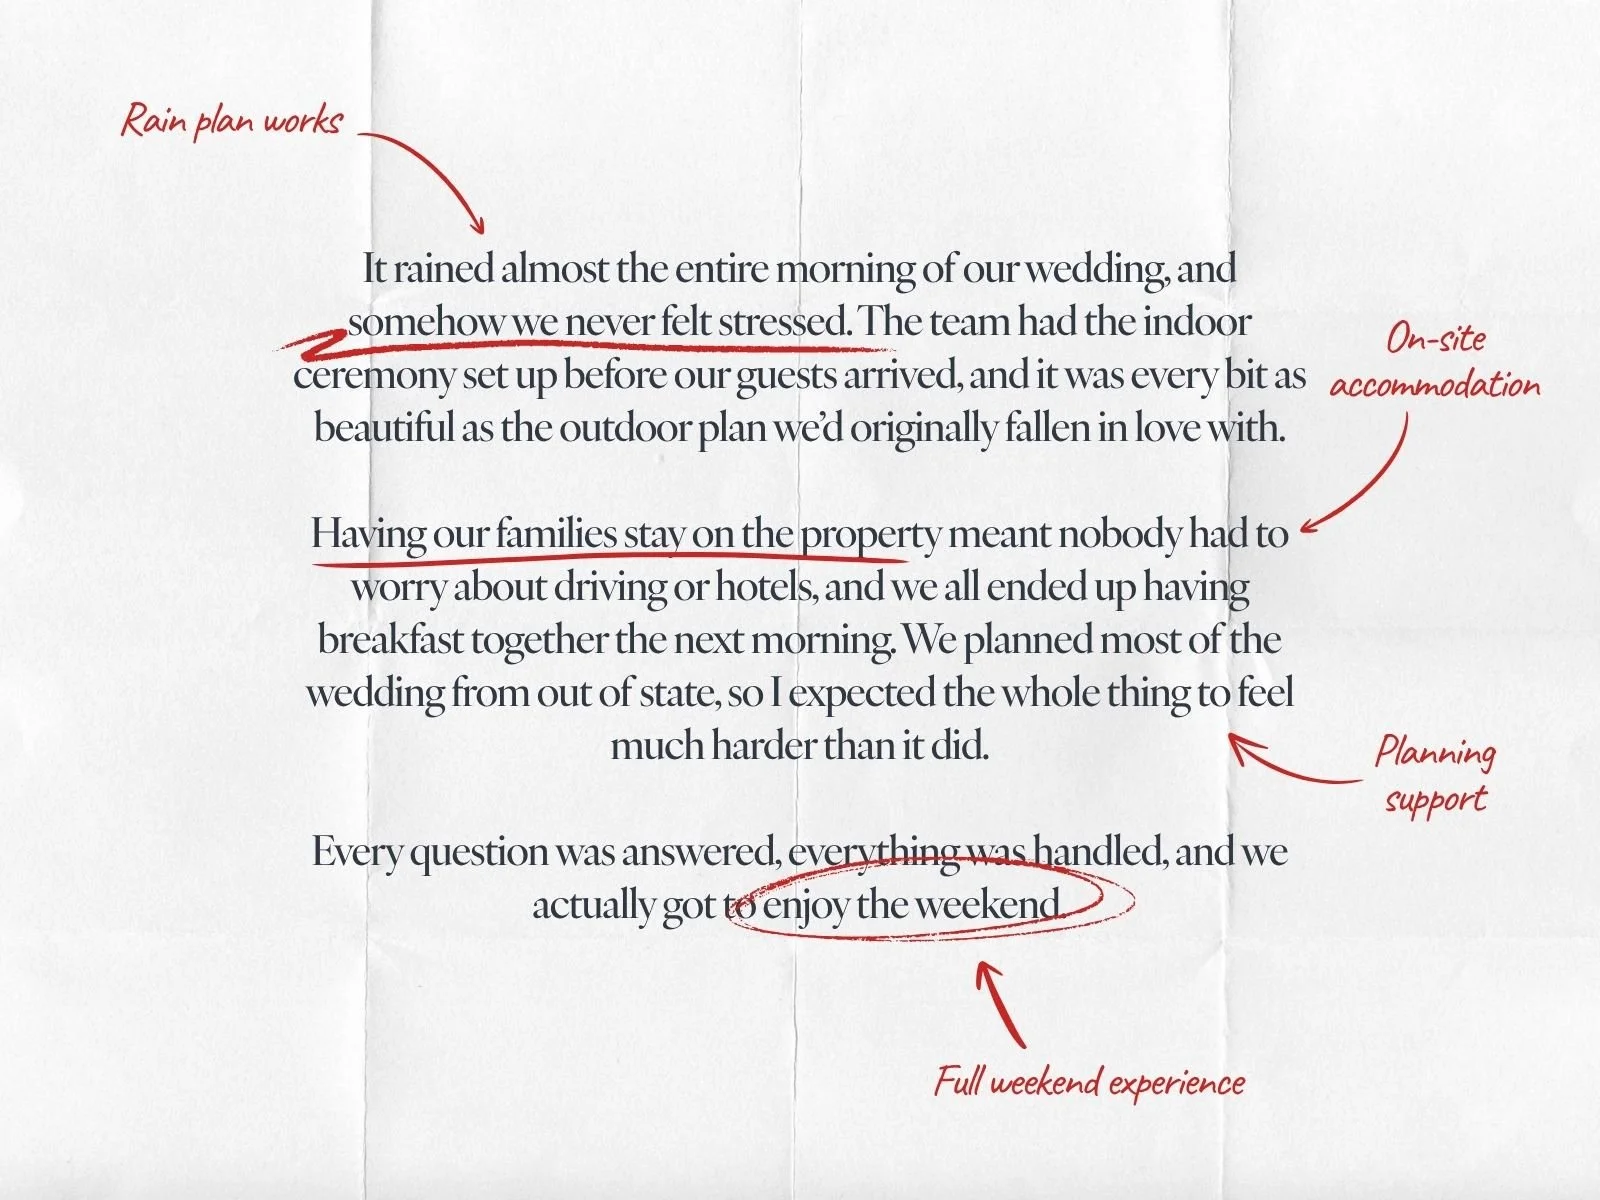 Rain plan works
It rained almost the entire morning of our wedding, and
somehow we never felt stressed. The team had the indoor
ceremony set up before our guests arrived, and it was every bit as
beautiful as the outdoor plan we’d originally fallen in love with.
On-site
accommodation
Having our families stay on the property meant nobody had to
worry about driving or hotels, and we all ended up having
breakfast together the next morning. We planned most of the
wedding from out of state, so I expected the whole thing to feel
much harder than it did.
Planning
support
Every question was answered, everything was handled, and we
actually got to enjoy the weekend.
Full weekend experience